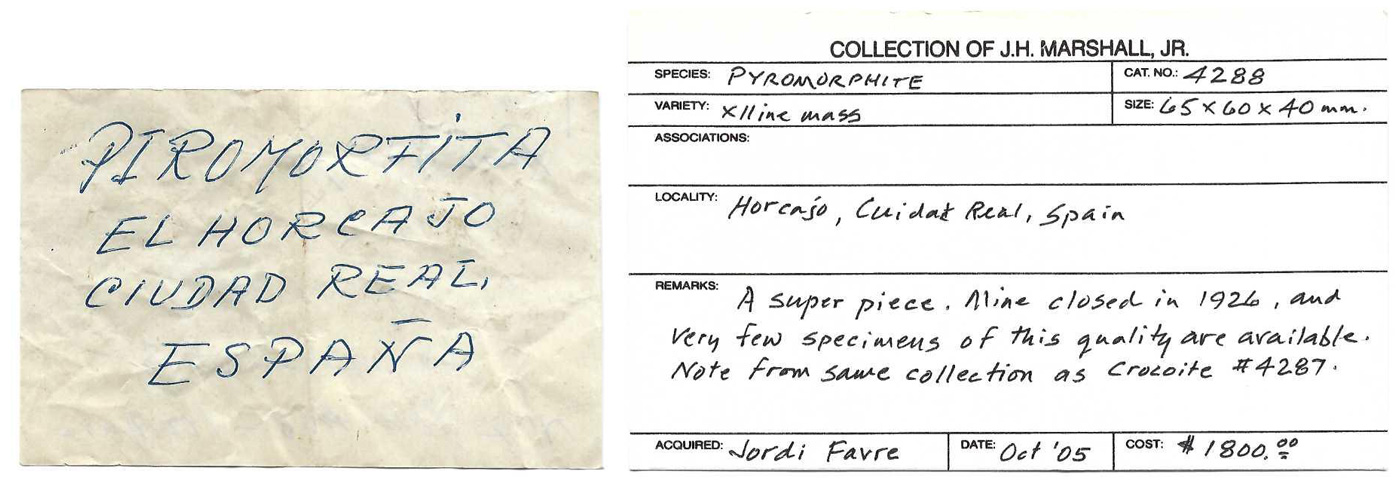 PIROMORFITA
EL HORCAJO
CIUDAD REAL.
ESPAÑA
COLLECTION OF J.H. MARSHALL, JR.
SPECIES: PYROMORPHITE
CAT. NO.: 4288
VARIETY: xlline mass
SIZE: 65 x 60 x 40 mm.
ASSOCIATIONS:
LOCALITY: Horcajo, Cuidat Real, Spain
REMARKS: A super piece. Mine closed in 1926, and
very few specimens of this quality are available.
Note from same collection as Crocoite #4287.
ACQUIRED: Jordi Favre
DATE: Oct '05
COST: $1800.00